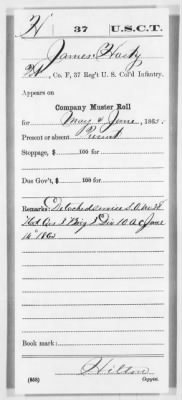 H 37 U.S.C.T.
James Hasty
Pvt, Co. F, 37 Reg't U. S. Col'd Infantry.
Appears on
Company Muster Roll
for May & June, 1865.
Present or absent Present
Stoppage, $ 100 for
Due Gov't, $ 100 for
Remarks: Detached service S.O. No
Hd Qrs 3 Brig 3 Div 10 A.C. June
14" 1865
Book mark:
Hilton
(858) Copyist.